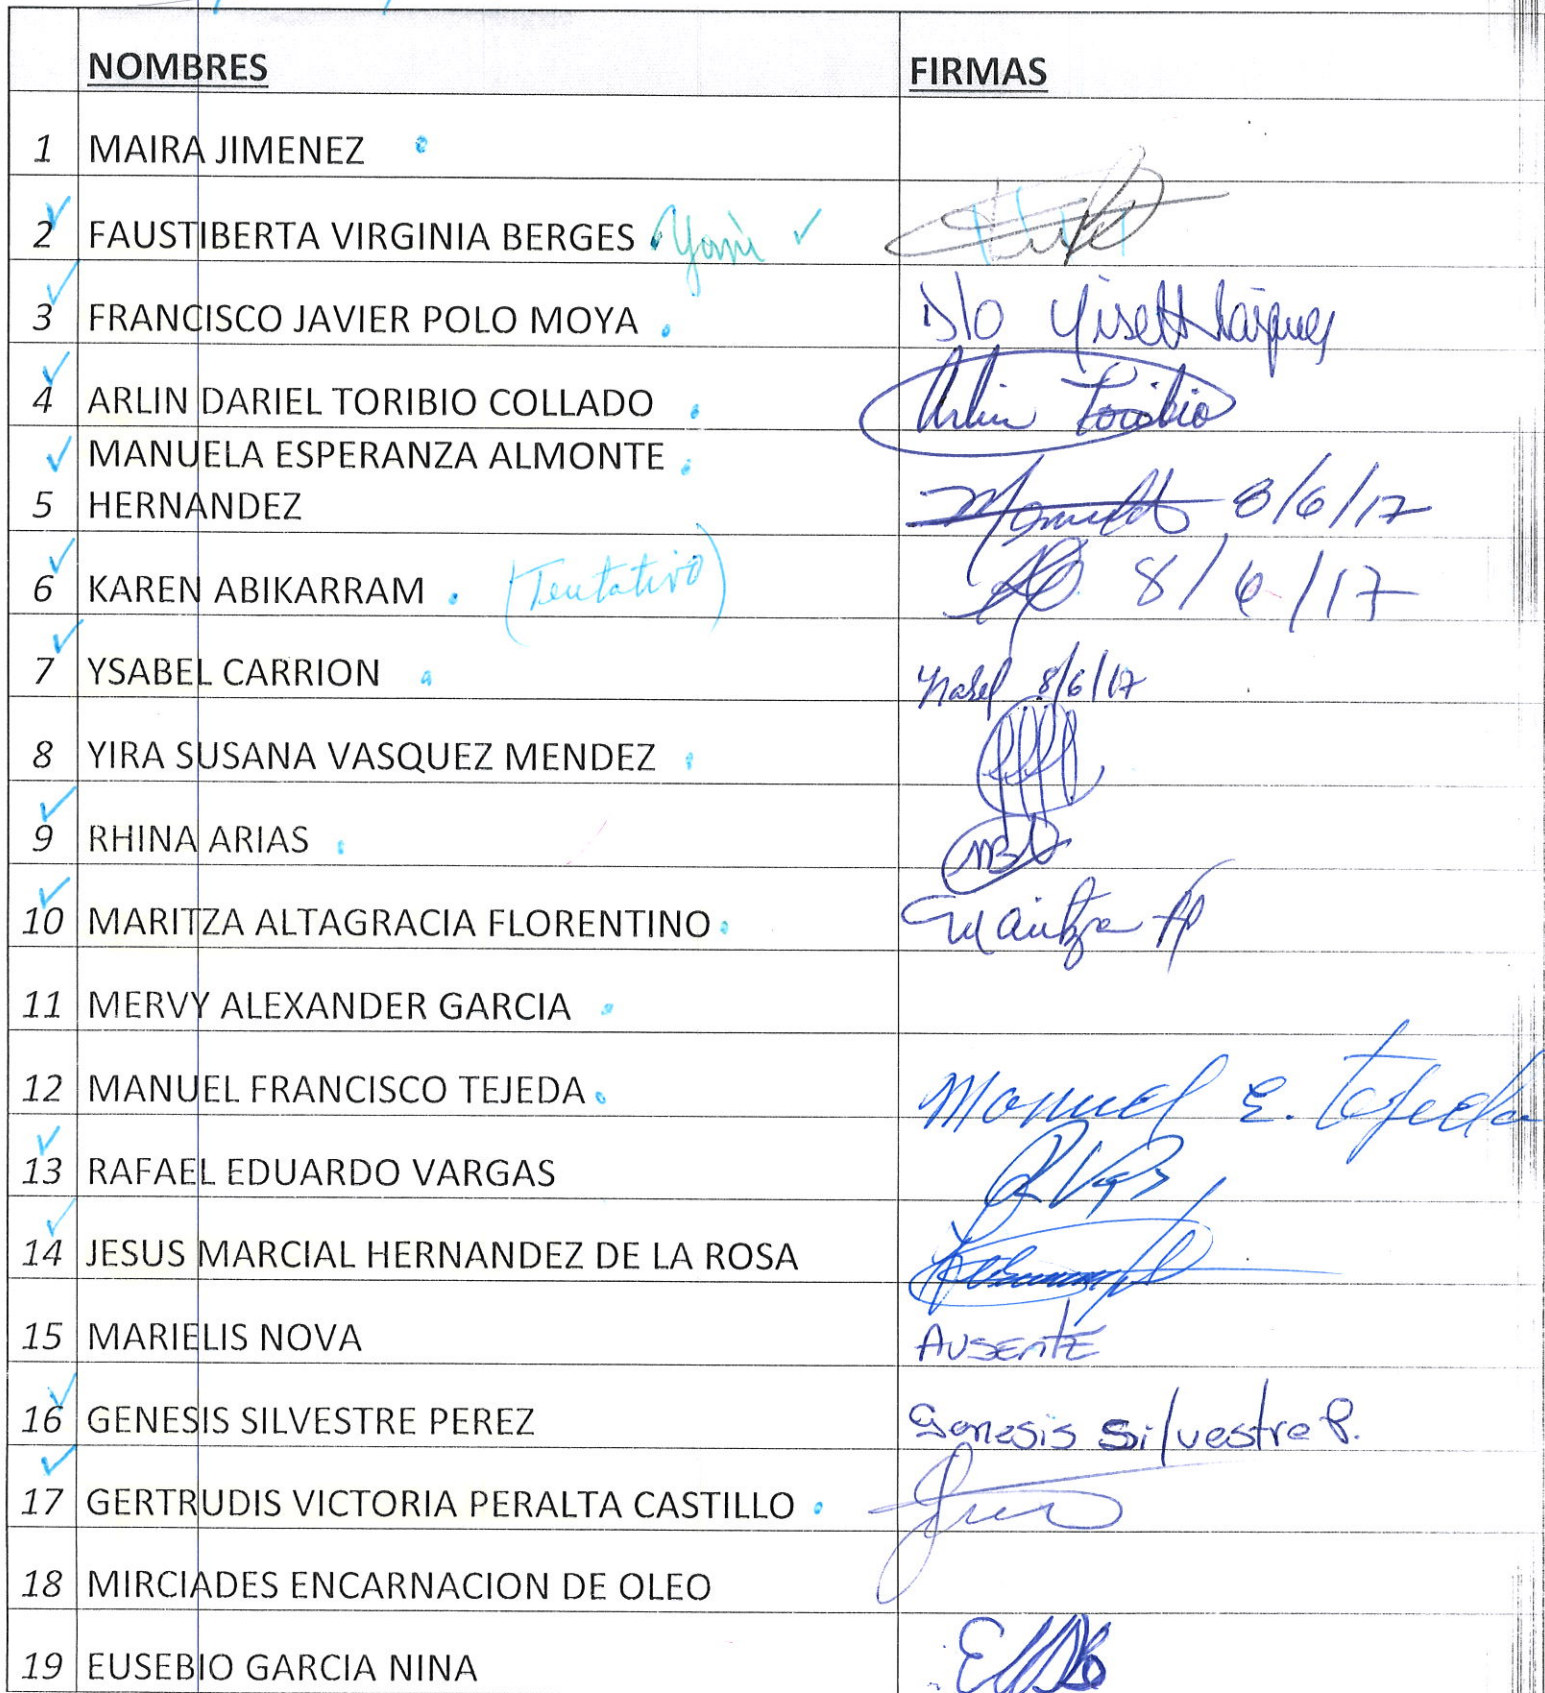 NOMBRES FIRMAS
1 MAIRA JIMENEZ
2 FAUSTIBERTA VIRGINIA BERGES
3 FRANCISCO JAVIER POLO MOYA
4 ARLIN DARIEL TORIBIO COLLADO Arlin Toribio
MANUELA ESPERANZA ALMONTE
5 HERNANDEZ 8/6/17
6 KAREN ABIKARRAM (Tentativo) 8/6/17
7 YSABEL CARRION 8/6/17
8 YIRA SUSANA VASQUEZ MENDEZ
9 RHINA ARIAS
10 MARITZA ALTAGRACIA FLORENTINO Maritza
11 MERVY ALEXANDER GARCIA
12 MANUEL FRANCISCO TEJEDA Manuel E. Tejeda
13 RAFAEL EDUARDO VARGAS
14 JESUS MARCIAL HERNANDEZ DE LA ROSA
15 MARIELIS NOVA AUSENTE
16 GENESIS SILVESTRE PEREZ Genesis Silvestre P.
17 GERTRUDIS VICTORIA PERALTA CASTILLO
18 MIRCIADES ENCARNACION DE OLEO
19 EUSEBIO GARCIA NINA